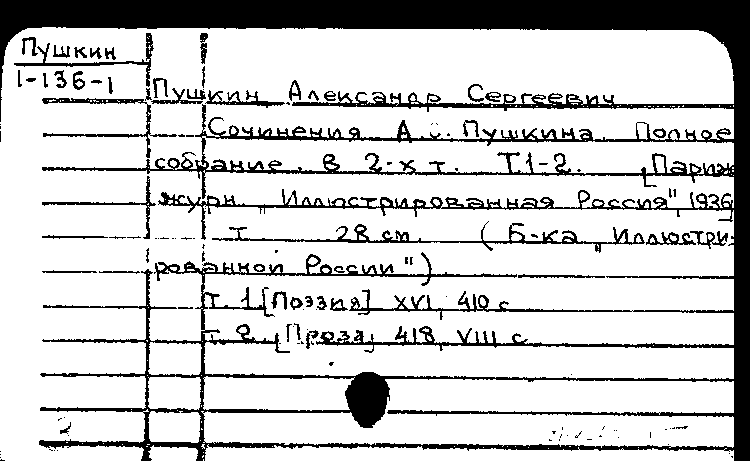 Пушкин
1-136-1
Пушкин Александр Сергеевич
Сочинения А.С. Пушкина. Полное
собрание. В 2-х т. Т.1-2. [Париж
журн. „Иллюстрированная Россия", 1936]
т 28 см. (Б-ка „Иллюстри-
рованной России").
Т. 1 [Поэзия] XVI, 410 с
Т. 2. [Проза] 418, VIII с